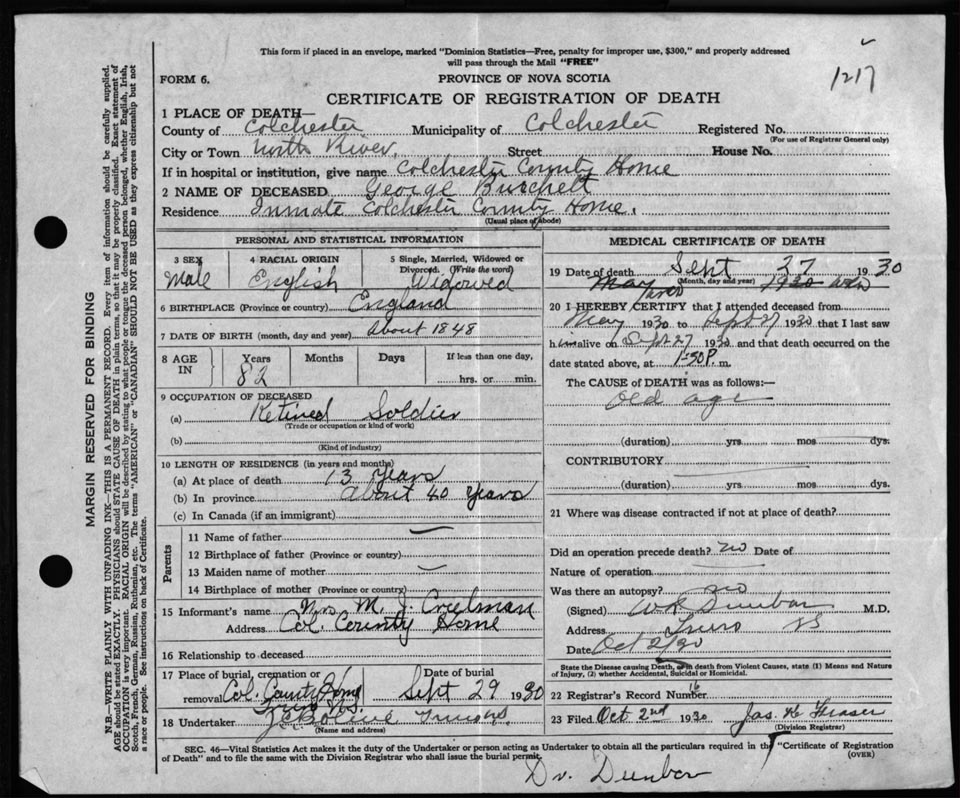 This form if placed in an envelope, marked "Dominion Statistics—Free, penalty for improper use, $300," and properly addressed
will pass through the Mail "FREE"
1217
FORM 6.
PROVINCE OF NOVA SCOTIA
CERTIFICATE OF REGISTRATION OF DEATH
1 PLACE OF DEATH—
County of Colchester Municipality of Colchester Registered No.
(For use of Registrar General only)
City or Town North River, Street House No.
If in hospital or institution, give name Colchester County Home
2 NAME OF DECEASED George Burchell
Residence Inmate Colchester County Home.
(Usual place of abode)
PERSONAL AND STATISTICAL INFORMATION
3 SEX 4 RACIAL ORIGIN 5 Single, Married, Widowed or Divorced. (Write the word)
Male English Widowed
6 BIRTHPLACE (Province or country) England
7 DATE OF BIRTH (month, day and year) About 1848
8 AGE IN Years Months Days If less than one day,
82 hrs. or min.
9 OCCUPATION OF DECEASED
(a) Retired Soldier
(Trade or occupation or kind of work)
(b)
(Kind of industry)
10 LENGTH OF RESIDENCE (in years and months)
(a) At place of death 13 years
(b) In province about 40 years
(c) In Canada (if an immigrant)
Parents
11 Name of father
12 Birthplace of father (Province or country)
13 Maiden name of mother
14 Birthplace of mother (Province or country)
15 Informant's name Mrs M. J. Creelman
Address Col. County Home
16 Relationship to deceased
17 Place of burial, cremation or Date of burial
removal Col. County Home Sept 29 1930
Truro N.S.
18 Undertaker Truro NS
(Name and address)
MEDICAL CERTIFICATE OF DEATH
19 Date of death Sept 27 1930
(Month, day and year)
May 1930
20 I HEREBY CERTIFY that I attended deceased from
May 1930 to Sept 27 1930 that I last saw
him alive on Sept 27 1930 and that death occurred on the
date stated above, at 1-50 P. m.
The CAUSE of DEATH was as follows:—
Old age
(duration) yrs. mos dys.
CONTRIBUTORY
(duration) yrs. mos. dys.
21 Where was disease contracted if not at place of death?
Did an operation precede death? no Date of
Nature of operation
Was there an autopsy? no
(Signed) Dunbar M.D.
Address Truro NS
Date Oct 2/30
State the Disease causing Death, or in death from Violent Causes, state (1) Means and Nature
of Injury, (2) whether Accidental, Suicidal or Homicidal.
22 Registrar's Record Number 16
23 Filed Oct 2nd 1930 Jas H Fraser
(Division Registrar)
SEC. 46—Vital Statistics Act makes it the duty of the Undertaker or person acting as Undertaker to obtain all the particulars required in the "Certificate of Registration
of Death" and to file the same with the Division Registrar who shall issue the burial permit.
(OVER)
Dr. Dunbar
MARGIN RESERVED FOR BINDING
N.B.—WRITE PLAINLY WITH UNFADING INK—THIS IS A PERMANENT RECORD. Every item of information should be carefully supplied.
AGE should be stated EXACTLY. PHYSICIANS should STATE CAUSE OF DEATH in plain terms, so that it may be properly classified. Exact statement of
OCCUPATION is very important. RACIAL ORIGIN will be described by stating to what people or tongue the deceased person belonged, whether English, Irish,
Scotch, French, German, Russian, Ruthenian, etc. The terms "AMERICAN" or "CANADIAN" SHOULD NOT BE USED as they express citizenship but not
a race or people. See instructions on back of Certificate.